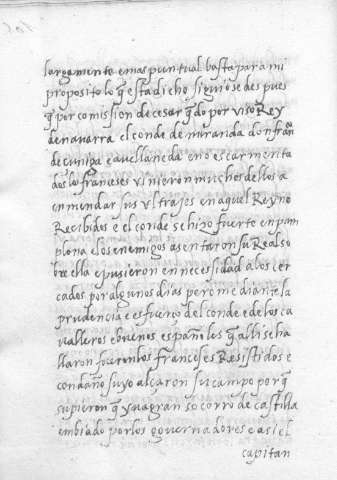 largamente e mas puntual basta para mi
proposito lo q̃ esta dicho siguiose despues
q̃ por comission de cesar q̃do por viso Rey
de navarra el conde de miranda don frãn
de cuniga e avellaneda e no escarmenta
dos los franceses vinieron muchos dellos a
enmendar sus vltrajes en aquel Reyno
Recibidos e el conde se hizo fuerte en pam
plona e los enemigos asentaron su Real so
bre ella e pusieron en necessidad a los cer
cados por algunos dias pero mediante la
prudencia e esfuerço del conde e de los ca
valleros e buenos españoles q̃ alli se ha
llaron fueron los franceses Resistidos e
con daño suyo alçaron su campo por q̃
supieron q̃ yva gran socorro de castilla
embiado por los governadores e asi el
capitan